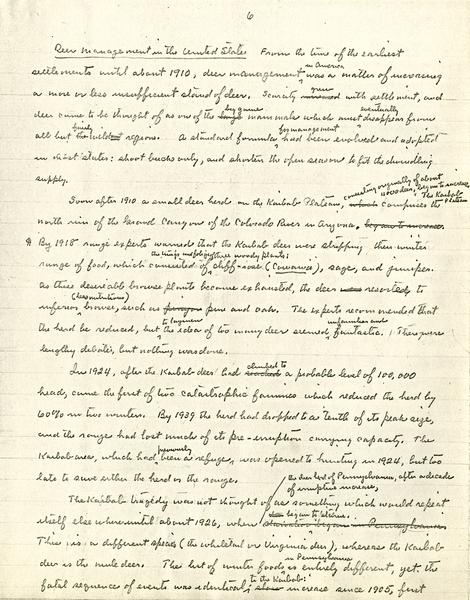 6
Deer Management in the United States From the time of the earliest
settlements until about 1910, deer management in America was a matter of increasing
a more or less insufficient stand of deer. Scarcity grew with settlement, and
deer came to be thought of as one of the big game mammals which must eventually disappear from
all but the lonely regions. A standard formula for management had been evolved and adopted
in most states: shoot bucks only, and shorten the open season to fit the dwindling
supply.
Soon after 1910 a small deer herd on the Kaibab Plateau, consisting originally of about 4000 deer, began to increase. The Kaibab Plateau comprises the
north rim of the Grand Canyon of the Colorado River in Arizona. began to increase.
By 1918 range experts warned that the Kaibab deer were stripping their winter
range of food, which consisted of the twigs and foliage of three woody plants: cliff-rose (Cowania), sage, and juniper.
As these desirable browse plants became exhausted, the deer resorted to
inferior browse, (less nutritious) such as pine and oak. The experts recommended that
the herd be reduced, but to laymen the idea of too many deer seemed unfamiliar and fantastic. There were
lengthy debates, but nothing was done.
In 1924, after the Kaibab deer had climbed to a probable level of 100,000
head, came the first of two catastrophic famines which reduced the herd by
60% in two winters. By 1939 the herd had dropped to a tenth of its peak size,
and the range had lost much of its pre-irruption carrying capacity. The
Kaibab area, which had previously been a refuge, was opened to hunting in 1924, but too
late to save either the herd or the range.
The Kaibab tragedy was not thought of as something which would repeat
itself elsewhere until about 1926, when the deer herd of Pennsylvania, after a decade of irruptive increase, began to starve. starvation began in Pennsylvania.
This is a different species (the whitetail or Virginia deer), whereas the Kaibab
deer is the mule deer. The list of winter foods in Pennsylvania is entirely different, yet the
fatal sequence of events was identical to the Kaibab: increase since 1905, first